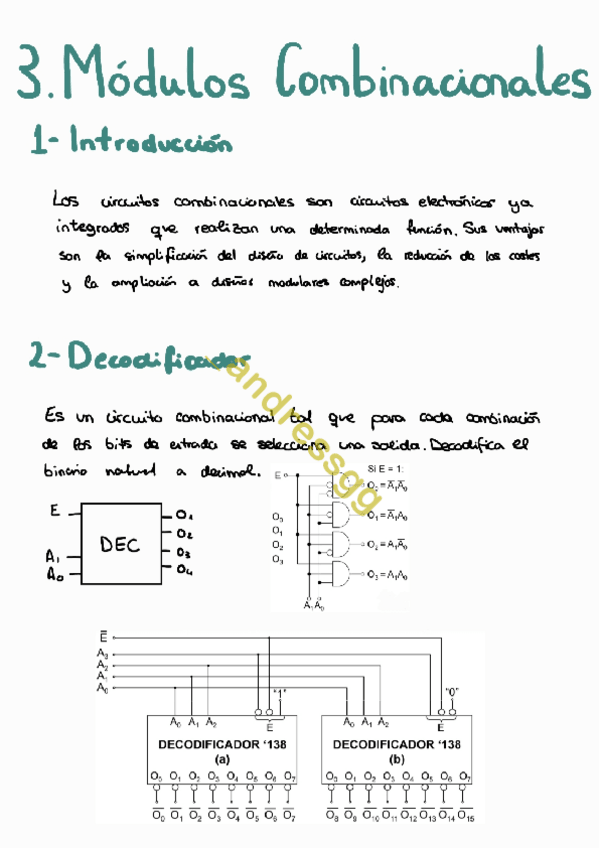 3. Módulos Combinacionales
1- Introducción
Los circuitos combinacionales son circuitos electrónicos ya
integrados que realizan una determinada función. Sus ventajas
son la simplificación del diseño de circuitos, la reducción de los costes
y la ampliación a diseños modulares complejos.
2- Decodificador
Es un circuito combinacional tal que para cada combinación
de los bits de entrada se selecciona una salida. Decodifica el
binario natural a decimal.
Jandressgg
E
A₁
A₀
DEC
O₁
O₂
O₃
O₄
Si E = 1:
E
O₀
O₁
O₂
O₃
O₁ = A̅₁A₀
O₂ = A₁A̅₀
O₃ = A₁A₀
A₁ A₀
E̅
A₃
A₂
A₁
A₀
"1" "0"
A₀ A₁ A₂ E A₀ A₁ A₂ E
DECODIFICADOR '138 DECODIFICADOR '138
(a) (b)
O₀ O₁ O₂ O₃ O₄ O₅ O₆ O₇ O₀ O₁ O₂ O₃ O₄ O₅ O₆ O₇
O̅₀ O̅₁ O̅₂ O̅₃ O̅₄ O̅₅ O̅₆ O̅₇ O̅₈ O̅₉ O̅₁₀ O̅₁₁ O̅₁₂ O̅₁₃ O̅₁₄ O̅₁₅